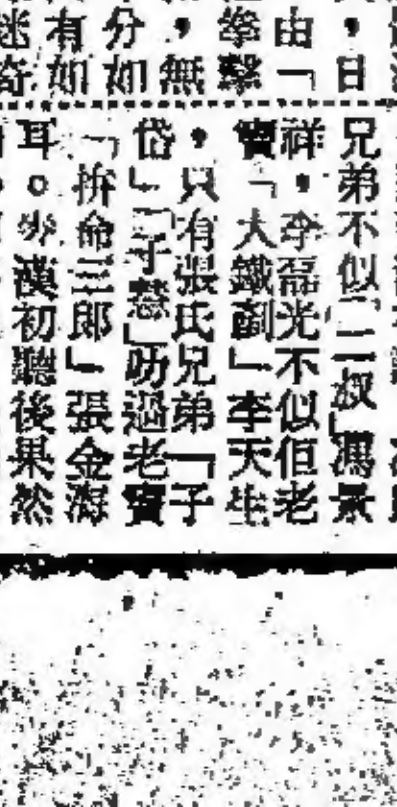 ，日
由「
拳擊
，無
分如
有如
迷奇
兄弟不似「二叔」馮景
祥，李磊光不似但老
竇「大鐵劃」李天生
，只有張氏兄弟「子
岱」「子慧」叻過老竇
「拚命三郎」張金海
耳。少漢初聽後果然